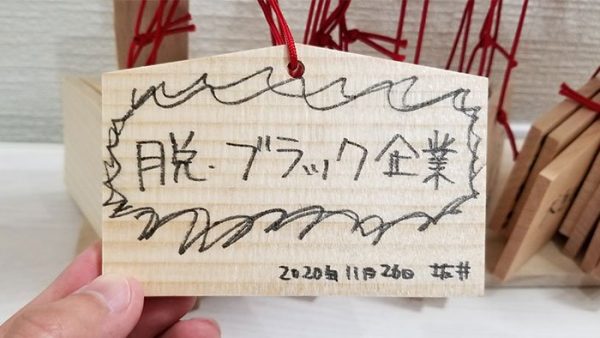 脱・ブラック企業
2020年11月26日 坂井